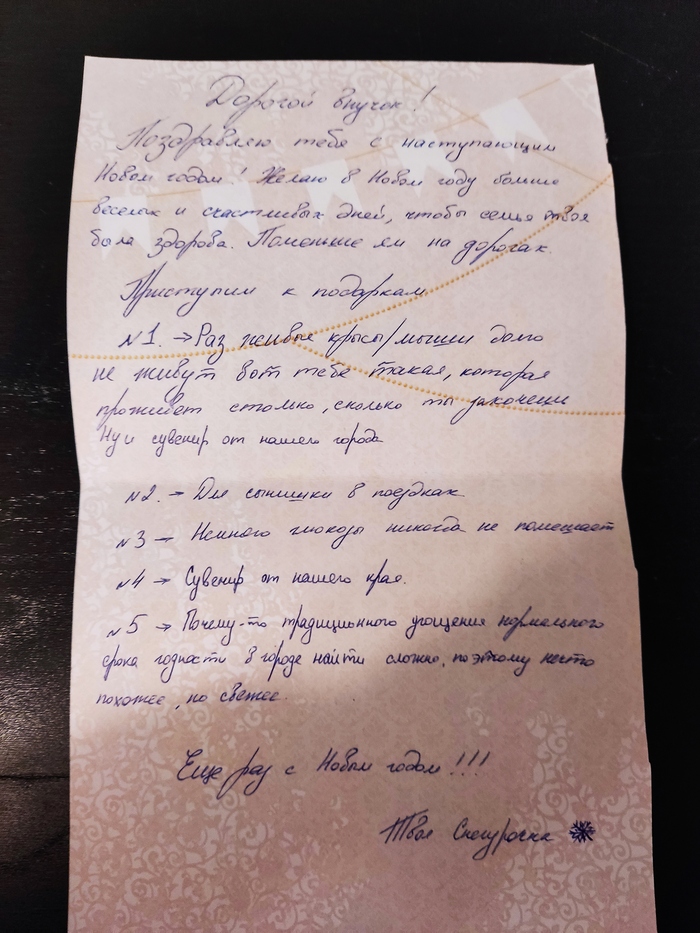 Дорогой внучок!
Поздравляю тебя с наступающим
Новым годом! Желаю в Новом году больше
веселых и счастливых дней, чтобы семья твоя
была здорова. Поменьше ям на дорогах.
Приступим к подаркам
№1. → Раз живые крысы/мыши долго
не живут вот тебе такая, которая
проживет столько, сколько ты захочешь
Ну и сувенир от нашего города
№2. → Для сынишки в поездках
№3 — Немного глюкозы никогда не помешает
№4 → Сувенир от нашего края.
№5 → Почему-то традиционного угощения нормального
срока годности в городе найти сложно, поэтому нечто
похожее, но свежее.
Еще раз с Новым годом!!!
Твоя Снегурочка